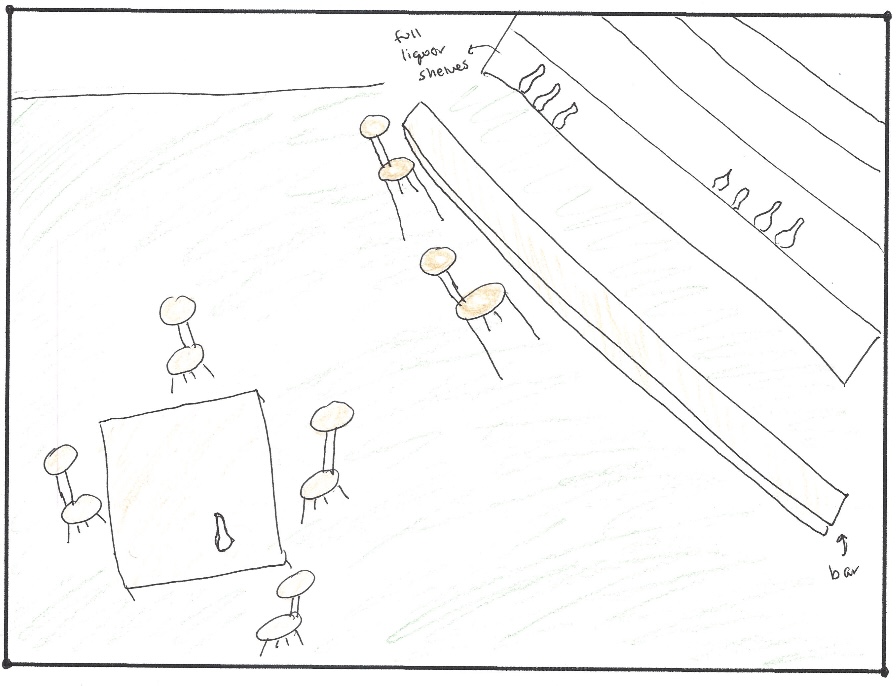 full
liquor
shelves
bar